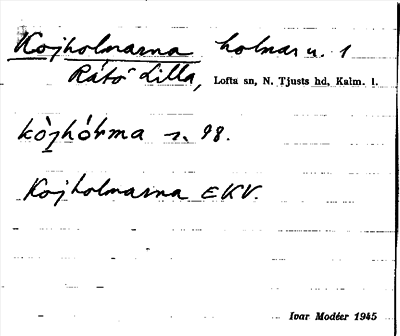 Kojholmarna holmar u. 1
Rätö Lilla, Lofta sn, N. Tjusts hd, Kalm. l.
kòjhórma s. 98.
Kojholmarna EKV.
Ivar Modéer 1945